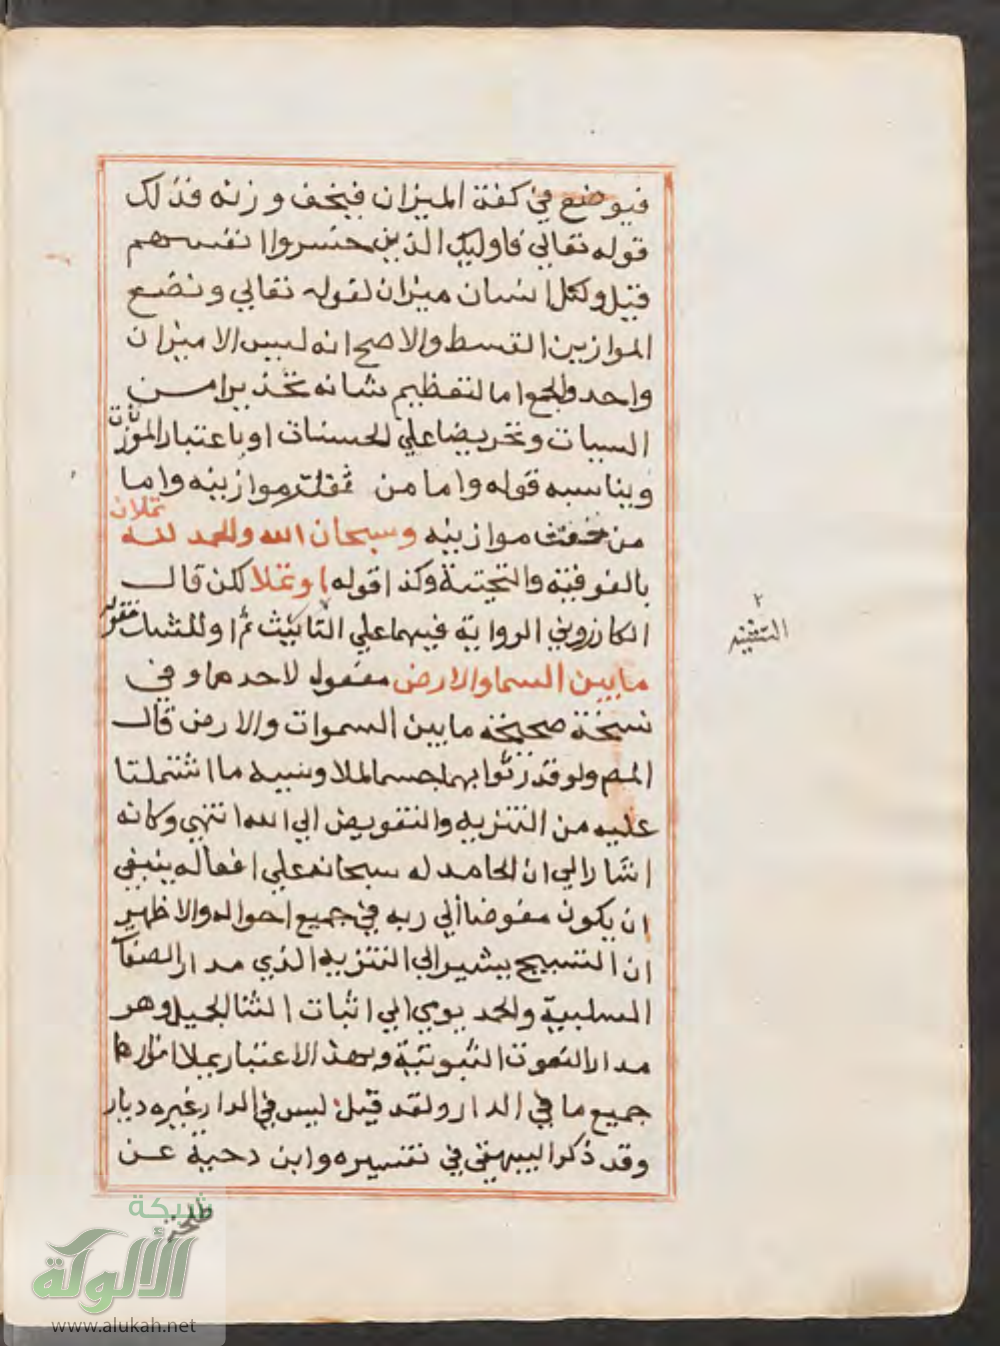 فيوضع في كفة الميزان فيخف وزنه فذلك
قوله تعالي فاوليك الذين خسروا انفسهم
قيل ولكل انسان ميزان لقوله تعالي ونضع
الموازين القسط والاصح انه ليس الا ميزان
واحد والجمع اما لتعظيم شانه تحذيرا من
السيات وتحريضا علي الحسنات او باعتبار الموزونات
ويناسبه قوله واما من ثقلت موازينه واما
من خفت موازينه وسبحان الله والحمد لله تملان
بالفوقية والتحتية وكذا قوله او تملا لكن قال
الكازروني الرواية فيهما علي التانيث ثم او للشك فقوله
ما بين السما والارض مفعول لاحدهما وفي
نسخة صحيحة ما بين السموات والارض قال
المص ولو قدر ثوابهما جسما لملا وسببه ما اشتملتا
عليه من التنزيه والتفويض الي الله انتهي وكانه
اشار الي ان الحامد له سبحانه علي افعاله ينبغي
ان يكون مفوضا الي ربه في جميع احواله والاظهر
ان التسبيح يشير الي التنزيه الذي مدار الصفات
السلبية والحمد يومي الي اثبات الثنا الجميل وهو
مدار النعوت الثبوتية وبهذا الاعتبار يملا انوارها
جميع ما في الدار ولقد قيل ليس في الدار غيره ديار
وقد ذكر البيهقي في تفسيره وابن دحية عن
طلحة
شبكة
الألوكة
www.alukah.net